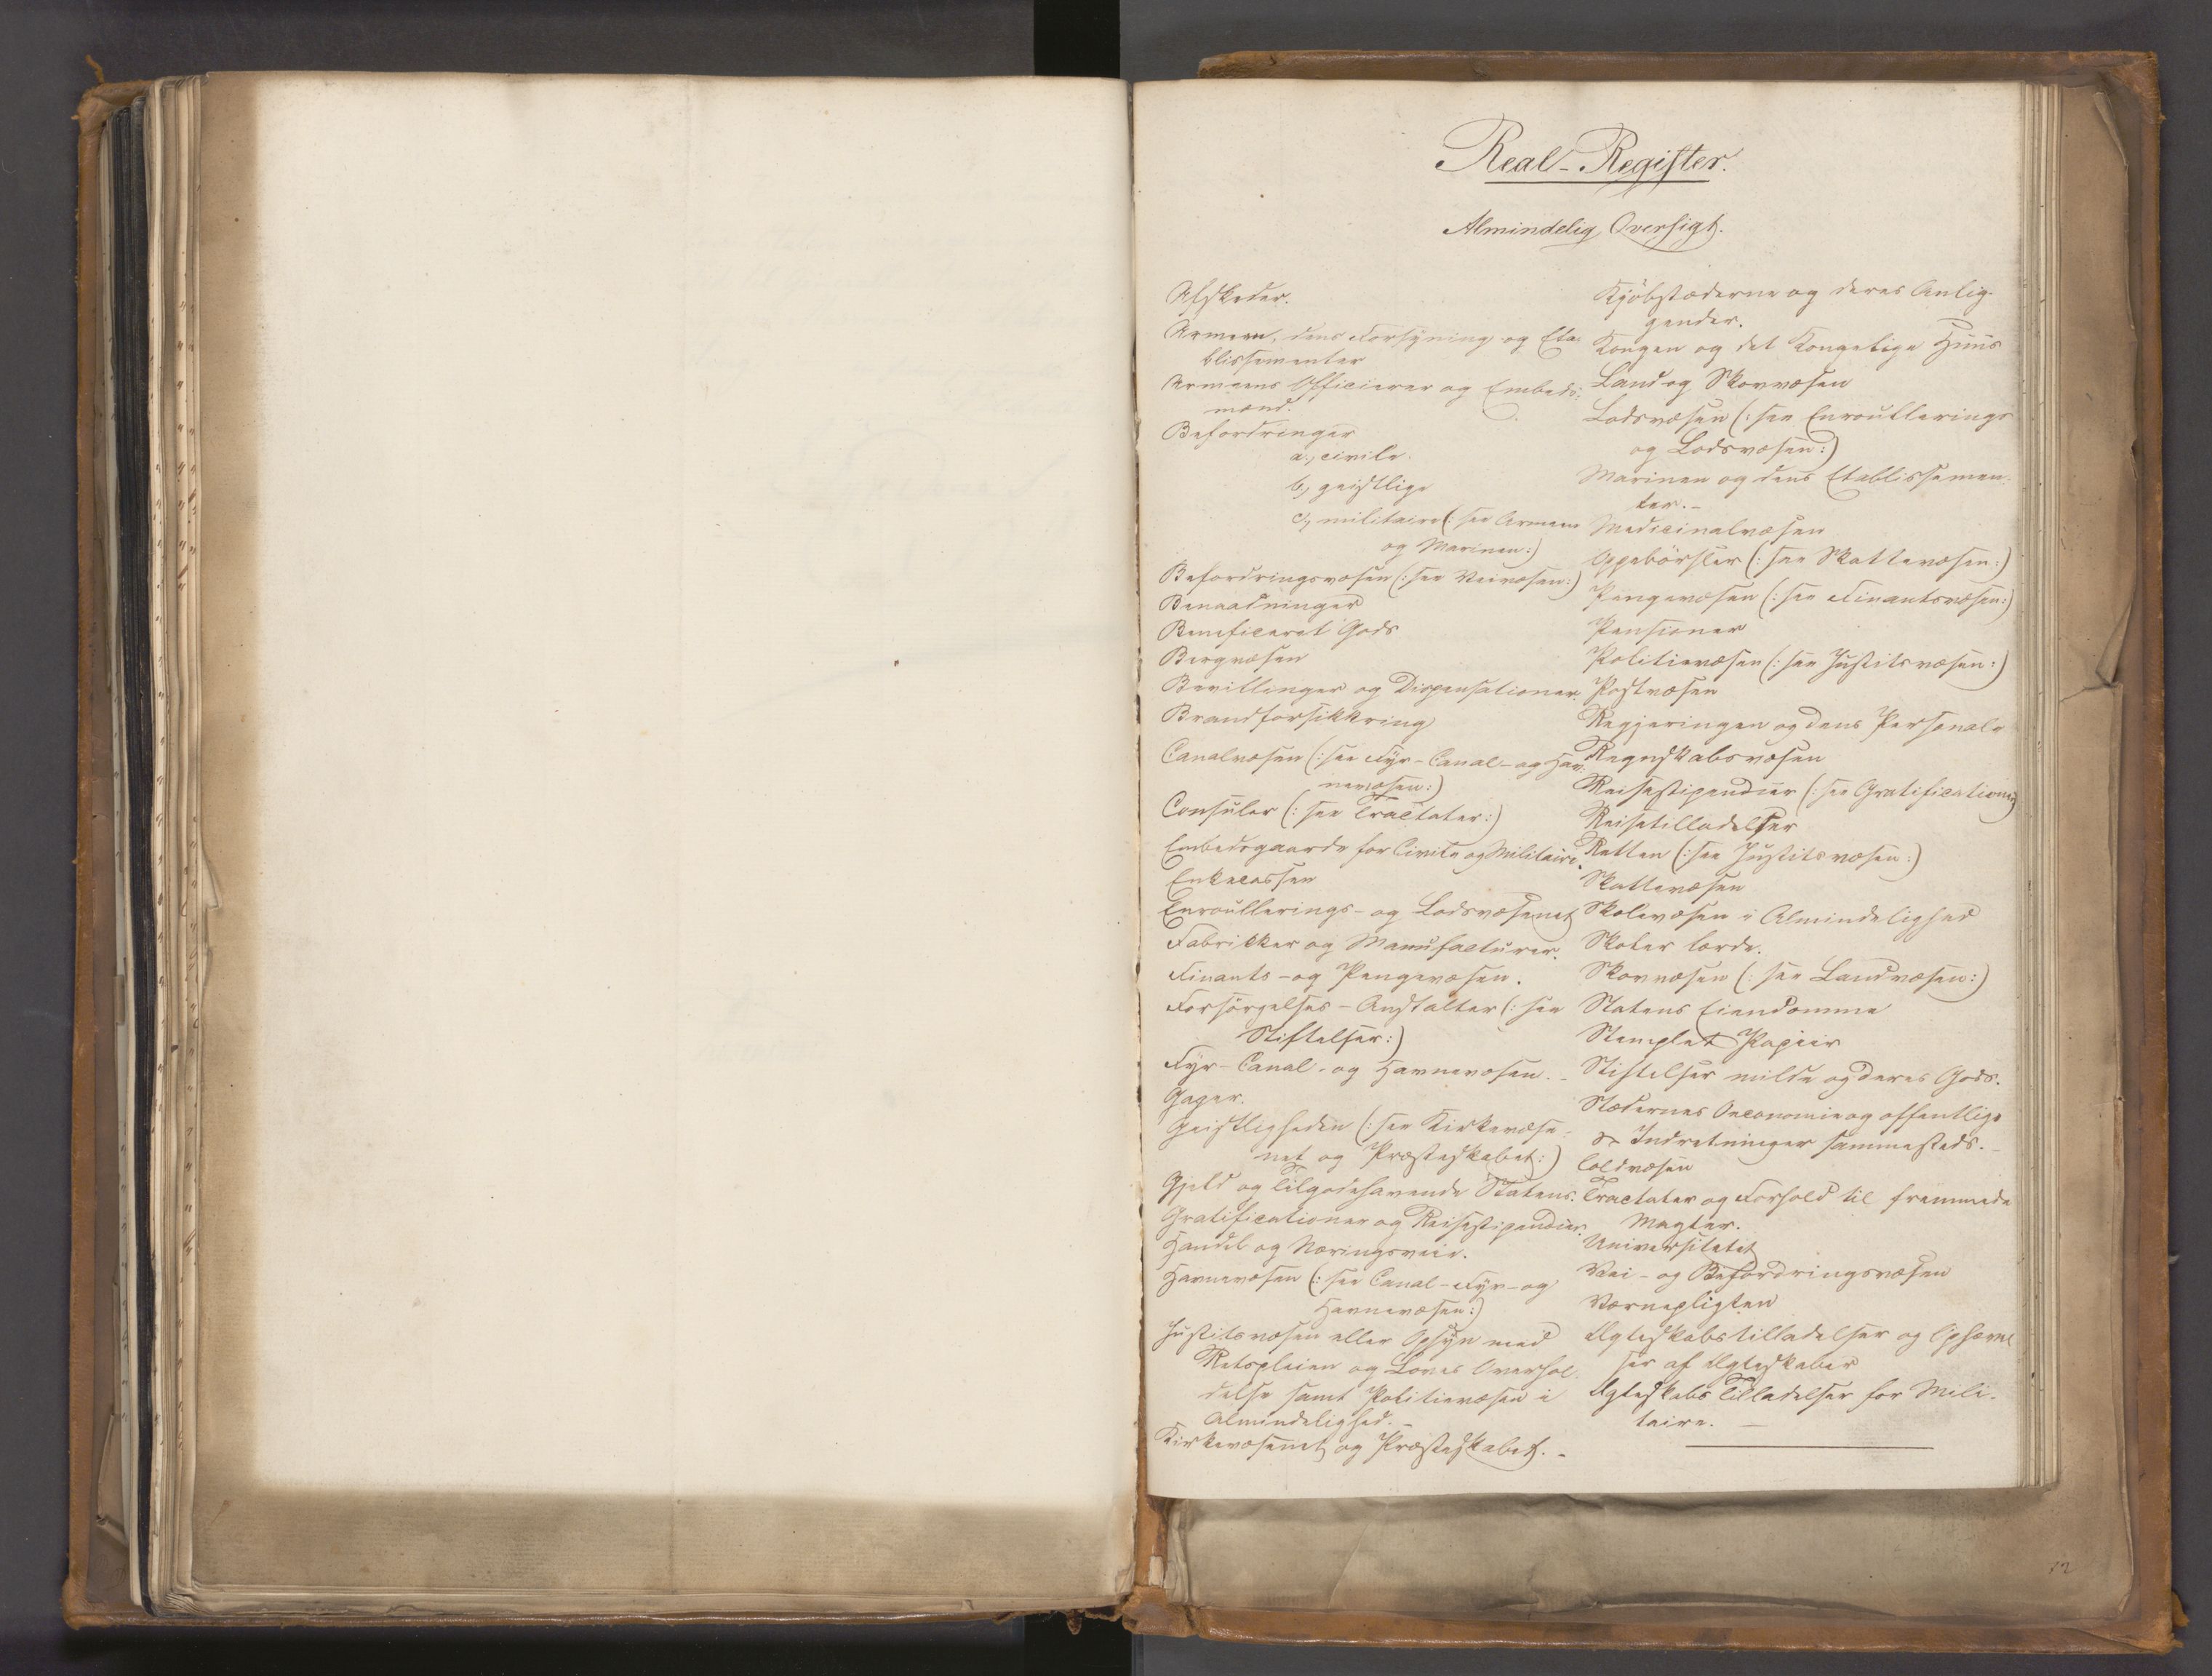 Real-Register.
Almindelig Oversigt.
Afskeder.
Armeen, dens Forsyning og Eta-
blissementer
Armeens Officierer og Embeds-
mænd.
Befordringer
a, civile.
b, geistlige
c, militaire (: see Armeen
og Marinen:)
Befordringsvæsen (: see Veivæsen:)
Benaadninger
Beneficeret Gods
Bergvæsen
Bevillinger og Dispensationer.
Brandforsikkring
Canalvæsen (: see Fyr- Canal- og Hav-
nevæsen:)
Consuler (: see Tractater:)
Embedsgaarde for Civile og Militaire.
Enkecassen
Enroullerings- og Lodsvæsenet
Fabrikker og Manufacturer.
Finants- og Pengevæsen.
Forsørgelses-Anstalter (: see
Stiftelser:)
Fyr- Canal- og Havnevæsen. -
Gager.
Geistligheden (: see Kirkevæse-
net og Præsteskabet:)
Gjeld og Tilgodehavende Statens.
Gratificationer og Reisestipendier.
Handel og Næringsveie.
Havnevæsen (: see Canal- Fyr- og
Havnevæsen:)
Justitsvæsen eller Opsyn med
Retspleien og Loves Overhol-
delse samt Politievæsen i
Almindelighed. -
Kirkevæsenet og Præsteskabet. -
Kjøbstæderne og deres Anlig-
gender.
Kongen og det Kongelige Huus
Land og Skovvæsen
Lodsvæsen (: see Enroullerings
og Lodsvæsen:)
Marinen og dens Etablissemen-
ter. -
Medicinalvæsen
Oppebørsler (: see Skattevæsen:)
Pengevæsen (: see Finantsvæsen:)
Pensioner
Politievæsen (: see Justitsvæsen:)
Postvæsen
Regjeringen og dens Personale
Regnskabsvæsen
Reisestipendier (: see Gratificationer)
Reisetilladelser
Retten (: see Justitsvæsen:)
Skattevæsen
Skolevæsen i Almindelighed
Skoler lærde.
Skovvæsen (: see Landvæsen:)
Statens Eiendomme
Stemplet Papiir
Stiftelser milde og deres Gods.
Stædernes Oeconomie og offentlige
Indretninger sammesteds. -
Toldvæsen
Tractater og Forhold til fremmede
Magter.
Universitetet
Vei- og Befordringsvæsen
Værnepligten
Ægteskabstilladelser og Ophævel
ser af Ægteskaber
Ægteskabs Tilladelser for Mili-
taire. -
12